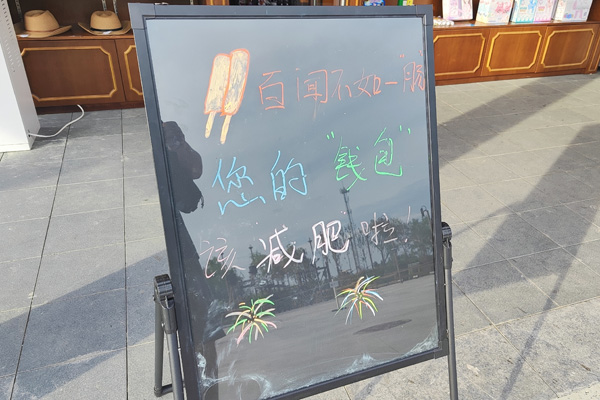 百闻不如一"肠
您的"钱包"
该"减肥"啦!